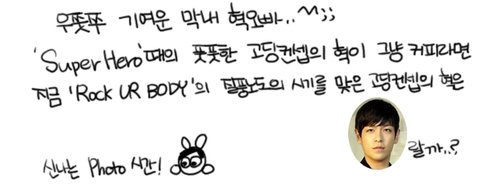 우쭛쭈 기여운 막내 혁오빠..^^;;
'Super Hero'때의 풋풋한 고딩컨셉의 혁이 그냥 커피라면
지금 'Rock UR BODY'의 질풍노도의 시기를 맞은 고딩컨셉의 혁은
랄까..?
신나는 Photo 시간!